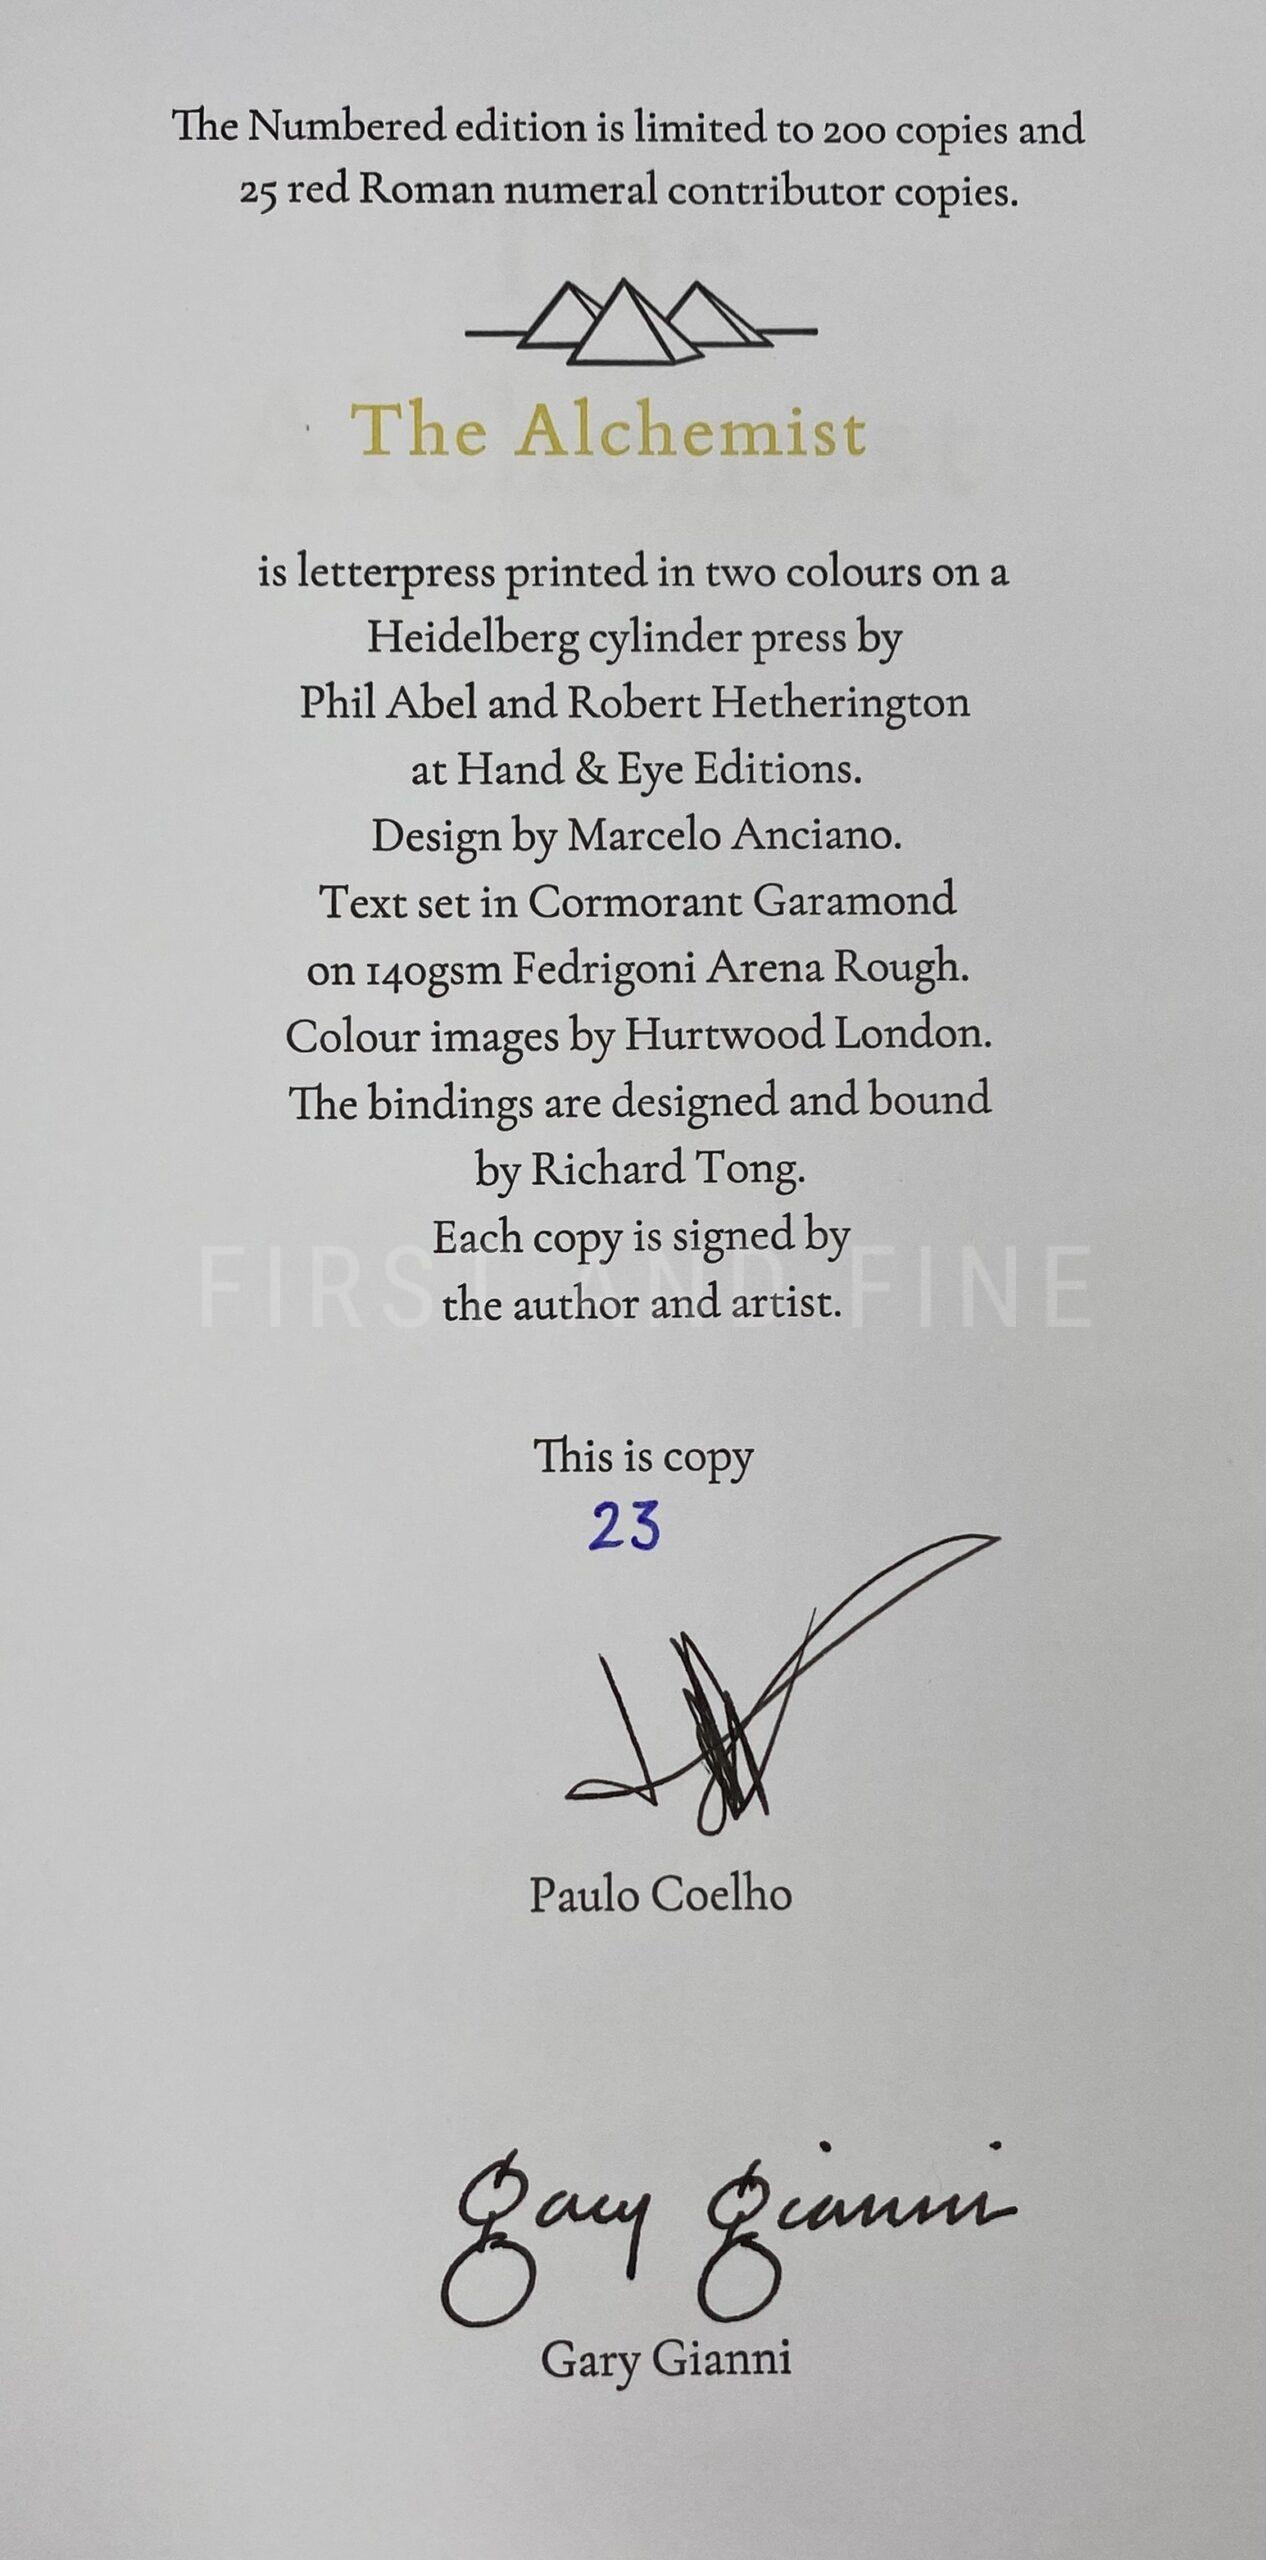 The Numbered edition is limited to 200 copies and
25 red Roman numeral contributor copies.
The Alchemist
is letterpress printed in two colours on a
Heidelberg cylinder press by
Phil Abel and Robert Hetherington
at Hand & Eye Editions.
Design by Marcelo Anciano.
Text set in Cormorant Garamond
on 140gsm Fedrigoni Arena Rough.
Colour images by Hurtwood London.
The bindings are designed and bound
by Richard Tong.
Each copy is signed by
the author and artist.
FIRST AND FINE
This is copy
23
Paulo Coelho
Gary Gianni
Gary Gianni